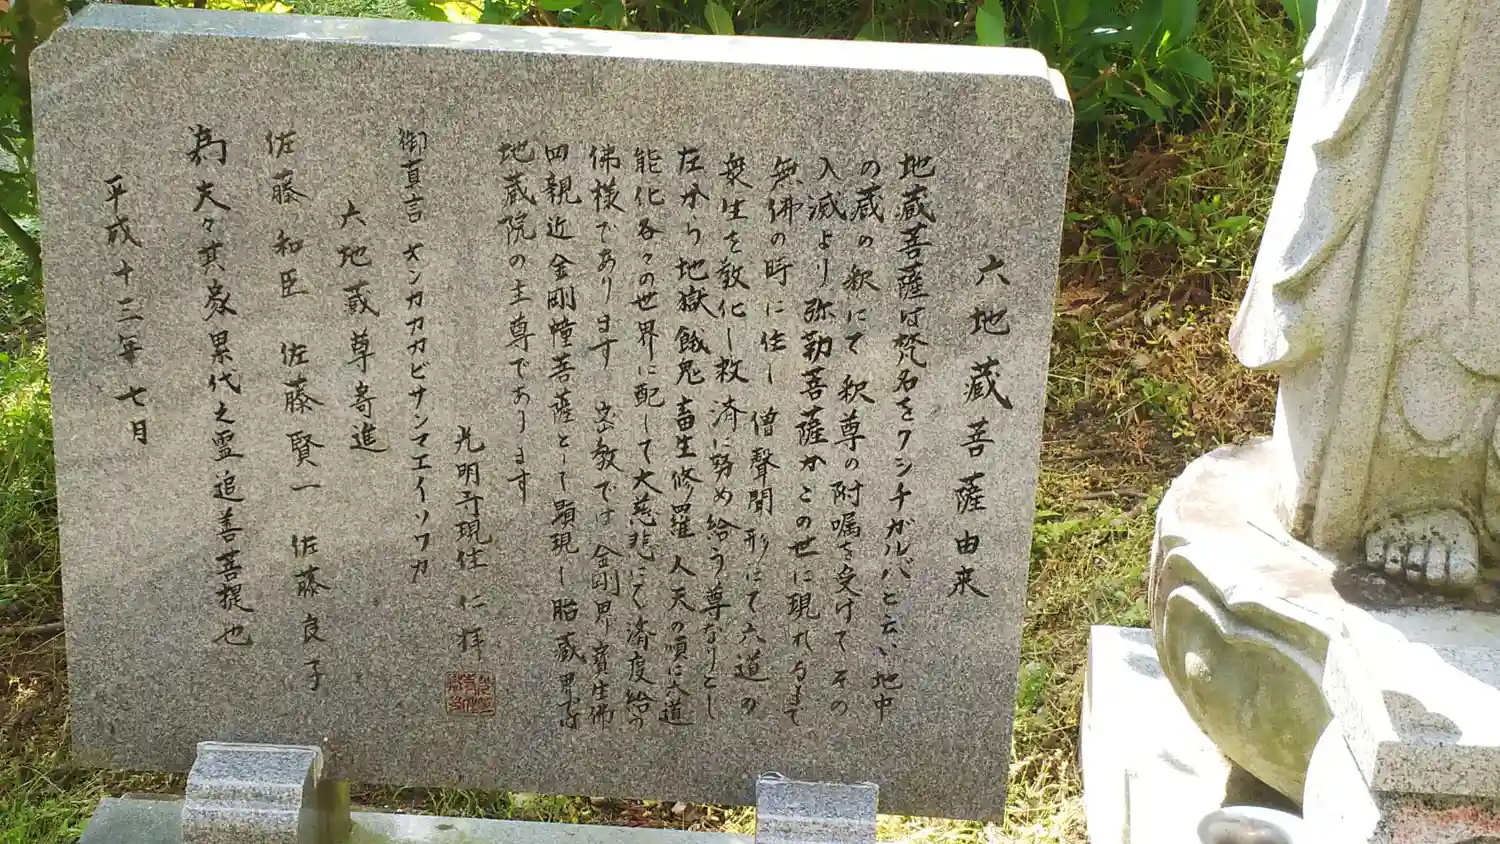 六地蔵菩薩由来
地蔵菩薩は梵名をクシチガルバと云い地中
の蔵の釈にて釈尊の附嘱を受けてその
入滅より弥勒菩薩がこの世に現れるまで
無佛の時に住し僧聲聞形にて六道の
衆生を教化し救済に努め給う尊なりとし
左から地獄餓鬼畜生修羅人天の順に六道
能化各々の世界に配して大慈悲にて済度給う
佛様であります 密教では金剛界宝生佛
四親近金剛幢菩薩として顕現し胎蔵界では
地蔵院の主尊であります
光明寺現住 仁 拝
御真言 オンカカカビサンマエイソワカ
六地蔵尊寄進
佐藤和臣 佐藤賢一 佐藤良子
為夫々其家累代之霊追善菩提也
平成十三年七月